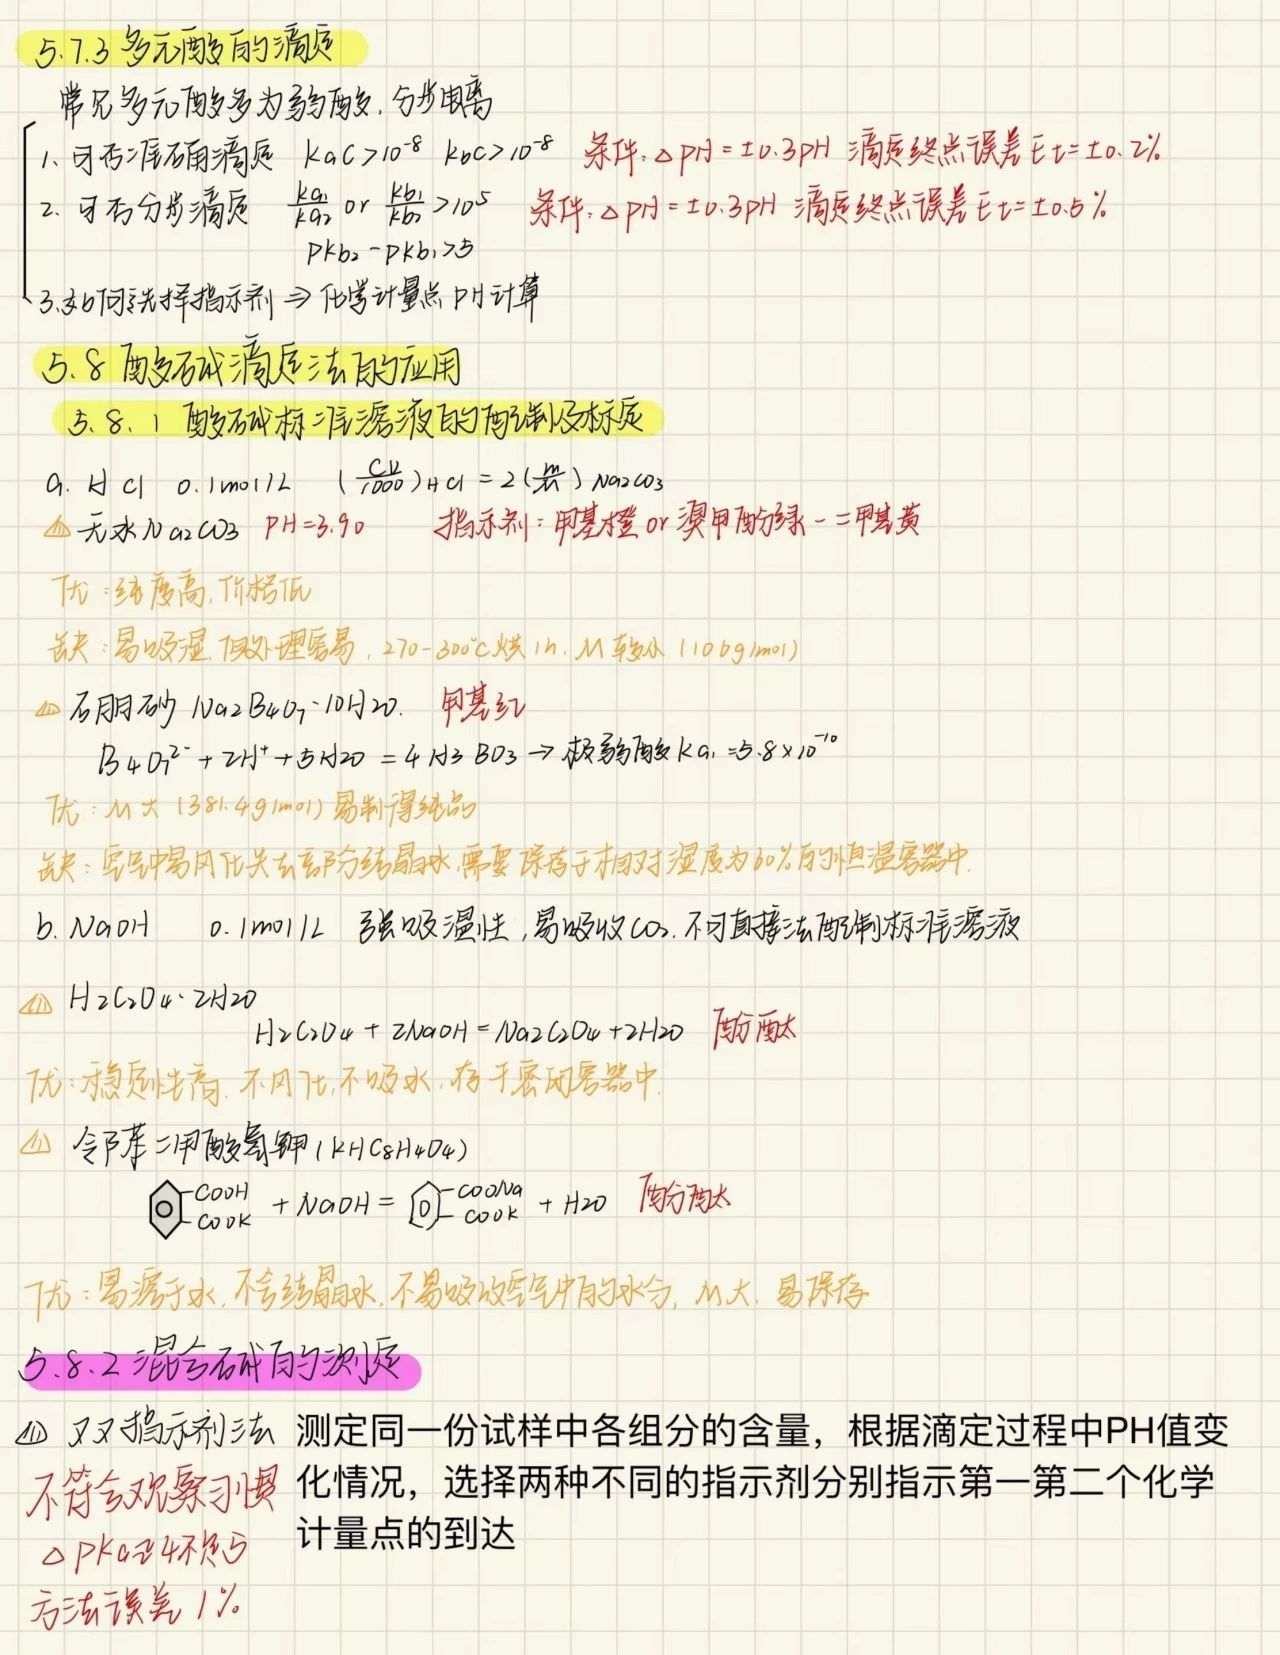 5.7.3 多元酸的滴定
常见多元酸多为弱酸,分步电离
1、可否准确滴定 kaC>10⁻⁸ kbC>10⁻⁸ 条件:△pH=±0.3pH 滴定终点误差Et=±0.2%
2、可否分步滴定 ka₁/ka₂ or kb₁/kb₂ >10⁵ 条件:△pH=±0.3pH 滴定终点误差Et=±0.5%
pkb₂-pkb₁>5
3.如何选择指示剂⇒化学计量点PH计算
5.8 酸碱滴定法的应用
5.8.1 酸碱标准溶液的配制及标定
a. HCl 0.1mol/L (CV/1000)HCl=2(m/M)Na2CO3
⑴ 无水Na2CO3 PH=3.90 指示剂:甲基橙or溴甲酚绿-二甲基黄
优:纯度高,价格低
缺:易吸湿,但处理容易,270-300℃烘1h,M较小(106g/mol)
⑵ 硼砂 Na2B4O7·10H2O. 甲基红
B4O7²⁻+2H⁺+5H2O=4H3BO3→极弱酸ka₁=5.8×10⁻¹⁰
优:M大(381.4g/mol)易制得纯品
缺:空气中易风化失去部分结晶水,需要保存于相对湿度为60%的恒湿容器中.
b. NaOH 0.1mol/L 强吸湿性,易吸收CO2.不可直接法配制标准溶液
⑴ H2C2O4·2H2O
H2C2O4+2NaOH=Na2C2O4+2H2O 酚酞
优:稳定性高,不风化,不吸水,存于密闭容器中.
⑵ 邻苯二甲酸氢钾(KHC8H4O4)
COOH COOK +NaOH= COONa COOK +H2O 酚酞
优:易溶于水,不含结晶水,不易吸收空气中的水分,M大,易保存
5.8.2 混合碱的测定
⑴ 双指示剂法 测定同一份试样中各组分的含量，根据滴定过程中PH值变
不符合观察习惯 化情况，选择两种不同的指示剂分别指示第一第二个化学
△pka≈4不足5 计量点的到达
方法误差1%